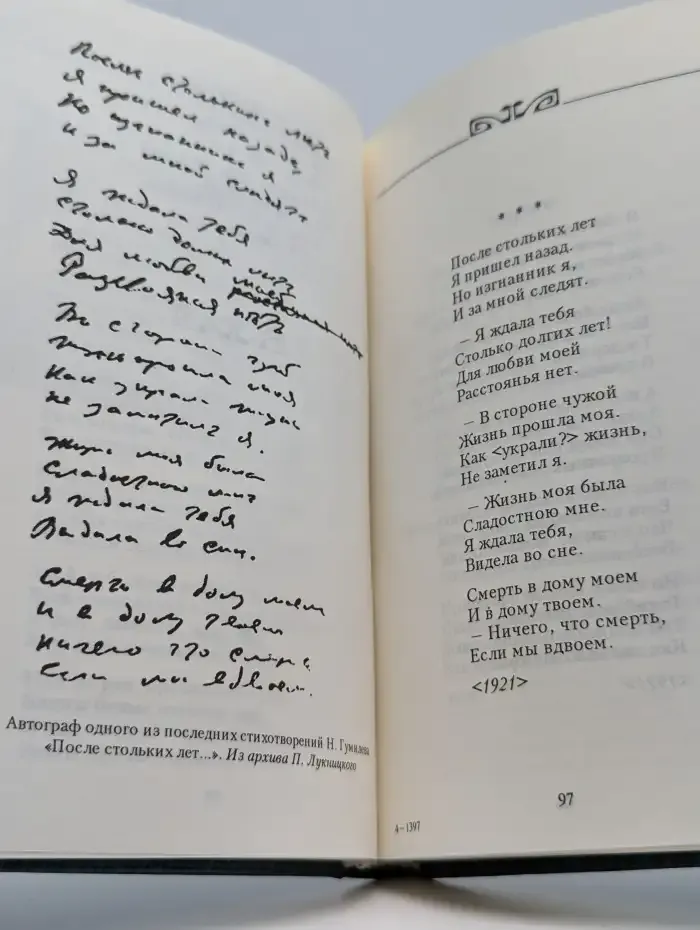 После стольких лет
Я пришел назад
Но изгнанник я
И за мной следят
Я ждала тебя
Столько долгих лет
Для любви моей
Расстоянья нет
В стороне чуж
Жизнь прошла моя
Как украли жизнь
Не заметил я.
Жизнь моя была
Сладостною мне
Я ждала тебя
Видала во сне.
Смерть в дому моем
И в дому твоем
Ничего что смерть
Если мы вдвоем.
Автограф одного из последних стихотворений Н. Гумилева
«После стольких лет...». Из архива П. Лукницкого
* * *
После стольких лет
Я пришел назад.
Но изгнанник я,
И за мной следят.
– Я ждала тебя
Столько долгих лет!
Для любви моей
Расстоянья нет.
– В стороне чужой
Жизнь прошла моя.
Как <украли?> жизнь,
Не заметил я.
– Жизнь моя была
Сладостною мне.
Я ждала тебя,
Видела во сне.
Смерть в дому моем
И в дому твоем.
– Ничего, что смерть,
Если мы вдвоем.
<1921>
97
А–1397